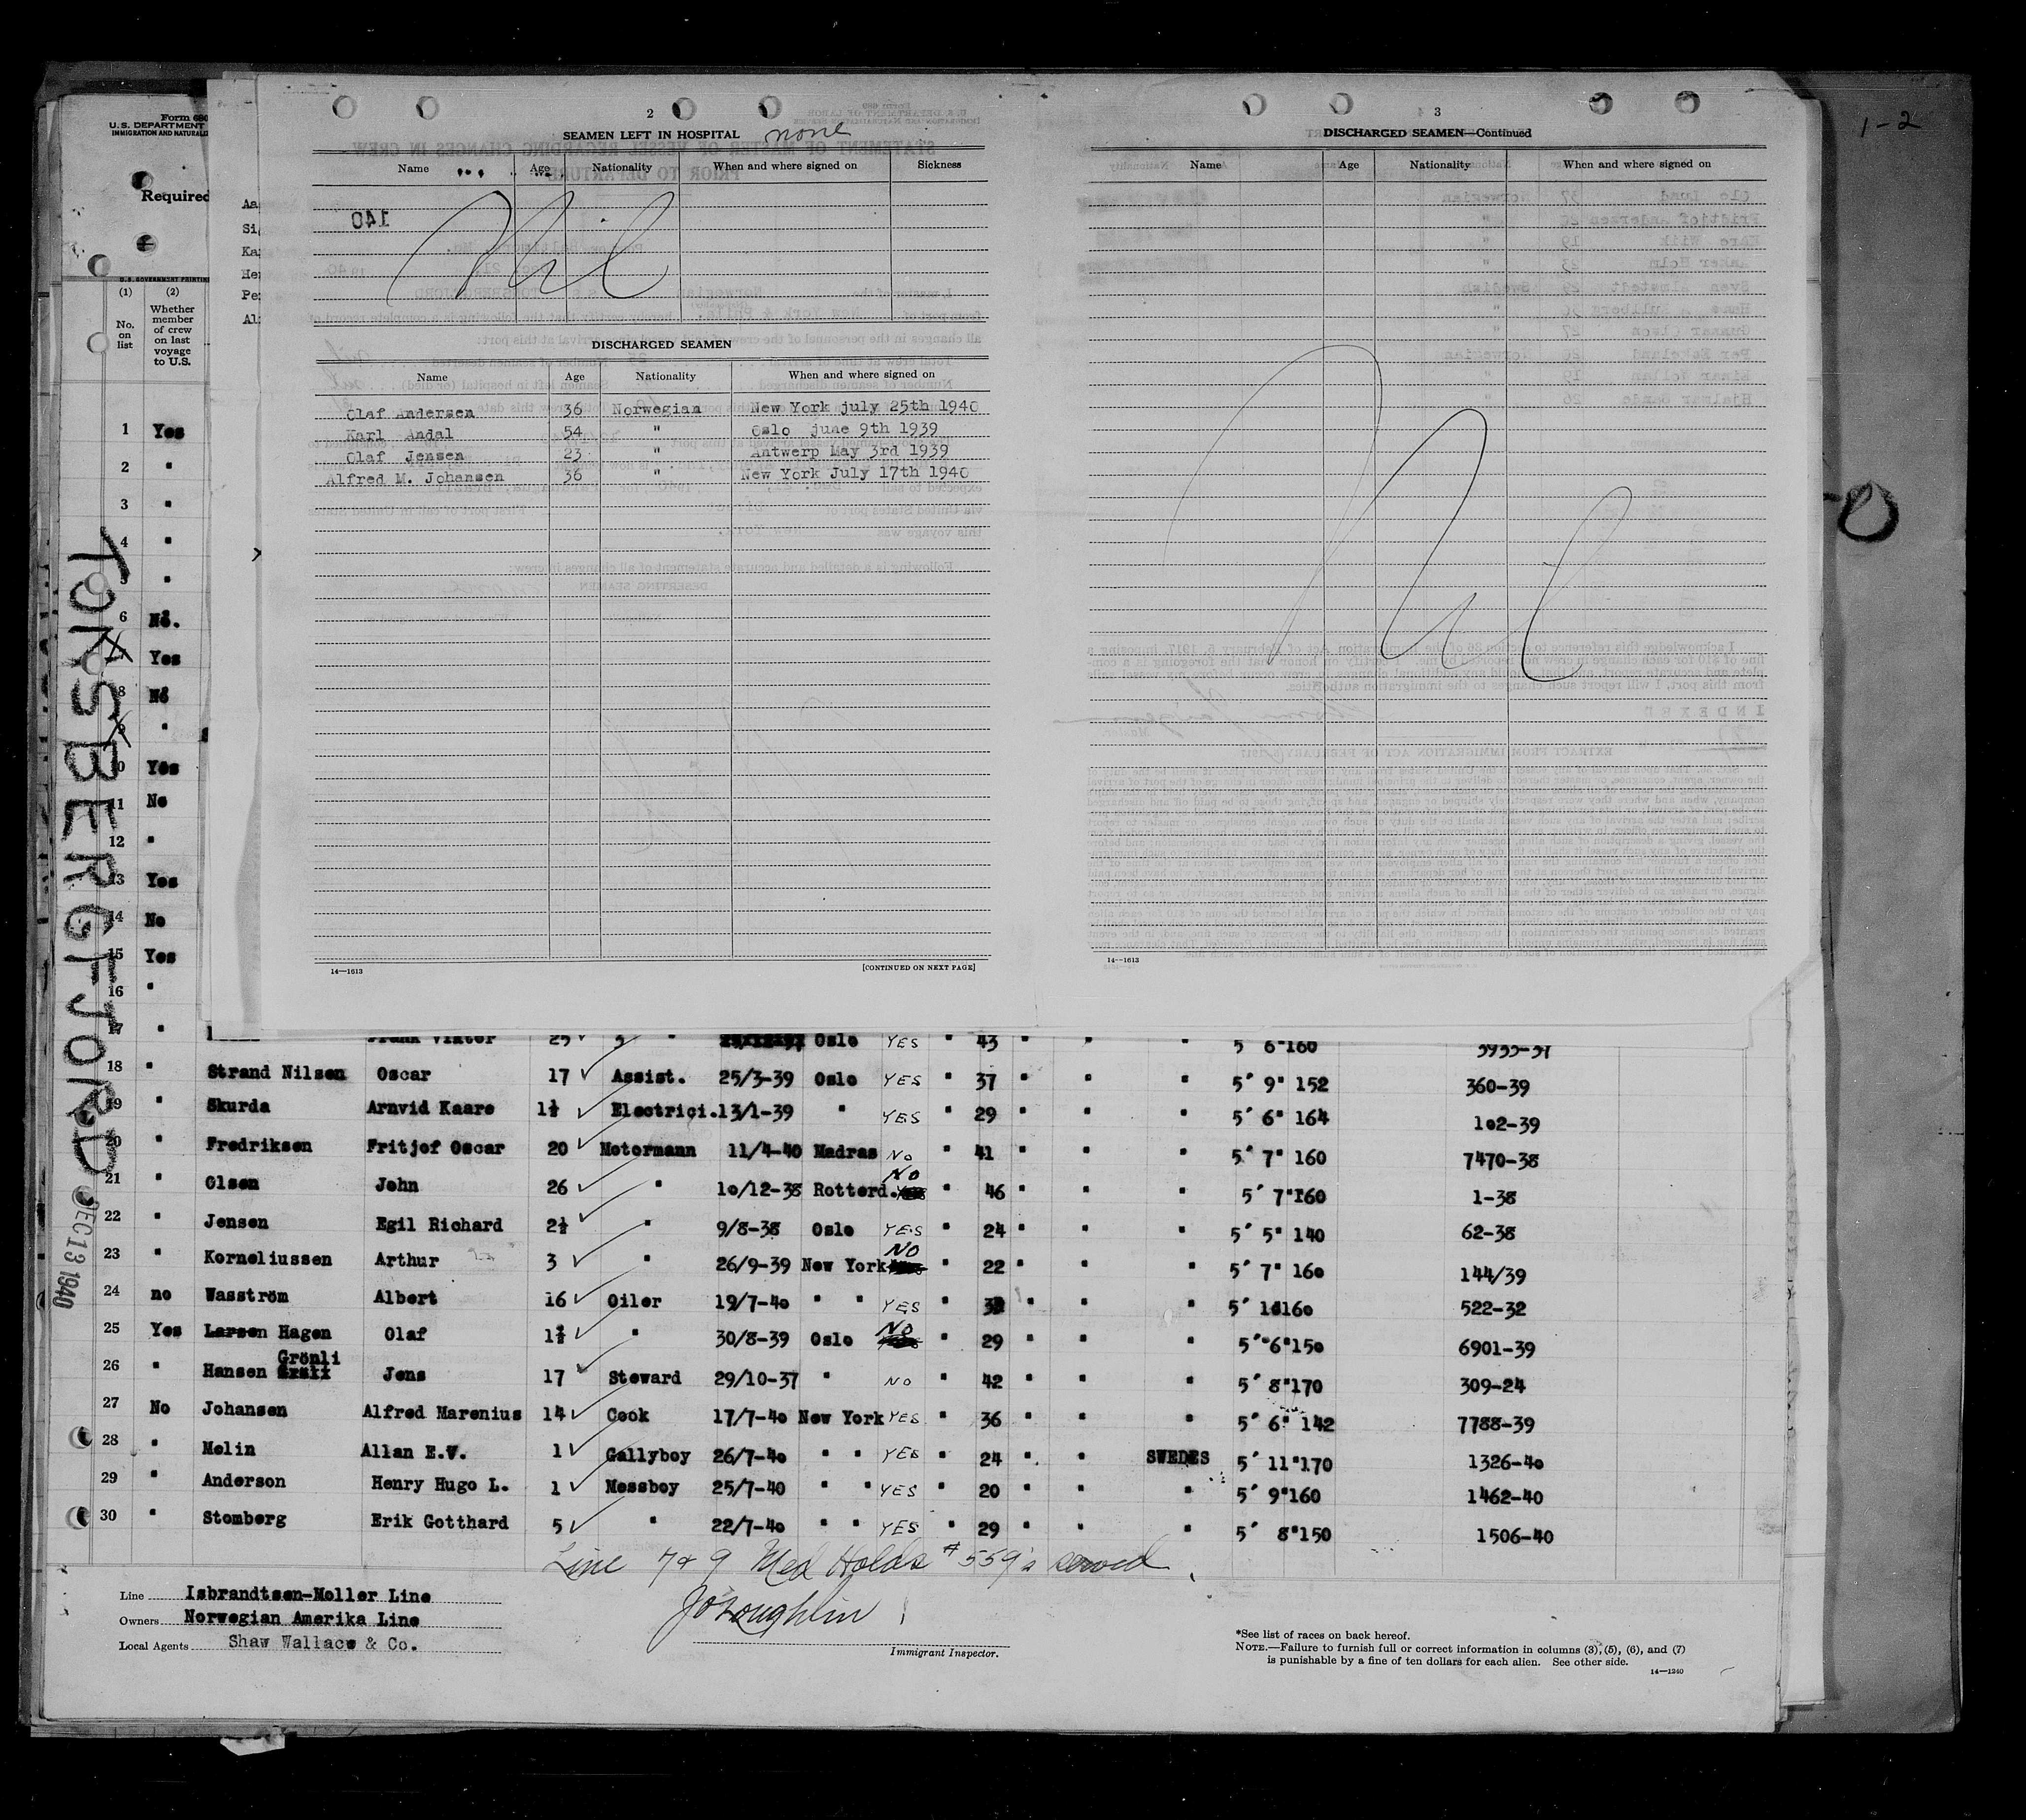 1-2
2
SEAMEN LEFT IN HOSPITAL none
Name Age Nationality When and where signed on Sickness
Nil
DISCHARGED SEAMEN
Name Age Nationality When and where signed on
Olaf Andersen 36 Norwegian New York july 25th 1940
Karl Andal 54 " Oslo june 9th 1939
Olaf Jensen 23 " Antwerp May 3rd 1939
Alfred M. Johansen 36 " New York July 17th 1940
14—1613 [CONTINUED ON NEXT PAGE]
3
DISCHARGED SEAMEN—Continued
Name Age Nationality When and where signed on
Nil
14—1613
Form 680
U.S. DEPARTMENT
IMMIGRATION AND NATURALIZ
Required
U.S. GOVERNMENT PRINTIN
(1) (2)
No. on list
Whether member of crew on last voyage to U.S.
1 Yes
2 "
3 "
4 "
5 "
6 No.
7 Yes
8 No
9 "
10 Yes
11 No
12 "
13 Yes
14 No
15 Yes
16 "
17 " Frank Viktor 25 3 " Oslo YES " 43 " " " 5' 6" 160 5955-37
18 " Strand Nilsen Oscar 17 ✓ Assist. 25/3-39 Oslo YES " 37 " " " 5' 9" 152 360-39
19 " Skurda Arnvid Kaare 1½ ✓ Electrici. 13/1-39 " YES " 29 " " " 5' 6" 164 102-39
20 " Fredriksen Fritjof Oscar 20 ✓ Motormann 11/4-40 Madras No " 41 " " " 5' 7" 160 7470-38
21 " Olsen John 26 ✓ " 10/12-38 Rotterd. NO " 46 " " " 5' 7" 160 1-38
22 " Jensen Egil Richard 2½ ✓ " 9/8-38 Oslo YES " 24 " " " 5' 5" 140 62-38
23 " Korneliussen Arthur 3 ✓ " 26/9-39 New York NO " 22 " " " 5' 7" 160 144/39
24 no Wasström Albert 16 ✓ Oiler 19/7-40 " " YES " " " " 5' 160 522-32
25 Yes Larsen Hagen Olaf ✓ " 30/8-39 Oslo NO " 29 " " " 5' 6" 150 6901-39
26 " Hansen Grönli Jens 17 ✓ Steward 29/10-37 " NO " 42 " " " 5' 8" 170 309-24
27 No Johansen Alfred Marenius 14 ✓ Cook 17/7-40 New York YES " 36 " " " 5' 6" 142 7788-39
28 " Molin Allan E.V. 1 ✓ Gallyboy 26/7-40 " " YES " 24 " " SWEDES 5' 11" 170 1326-40
29 " Anderson Henry Hugo L. 1 ✓ Messboy 25/7-40 " " YES " 20 " " " 5' 9" 160 1462-40
30 " Stomberg Erik Gotthard 5 ✓ " 22/7-40 " " YES " 29 " " " 5' 8" 150 1506-40
Line 7 & 9 Med Holds #559's served
JO'Loughlin
Immigrant Inspector.
Line Isbrandtsen-Moller Line
Owners Norwegian Amerika Line
Local Agents Shaw Wallace & Co.
*See list of races on back hereof.
NOTE.—Failure to furnish full or correct information in columns (3), (5), (6), and (7)
is punishable by a fine of ten dollars for each alien. See other side.
14—1240
TONSBERGFJORD
DEC 13 1940